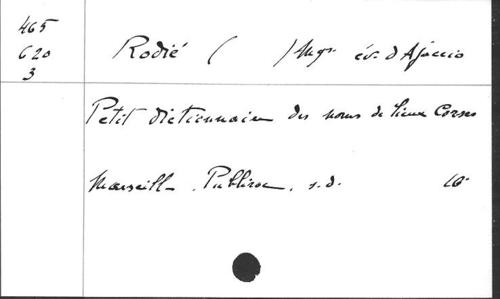 465
620
3
Rodié ( ) Mgr. év. d'Ajaccio
Petit dictionnaire des noms de lieux Corses
Marseille, Publiroc, s.d. 16°